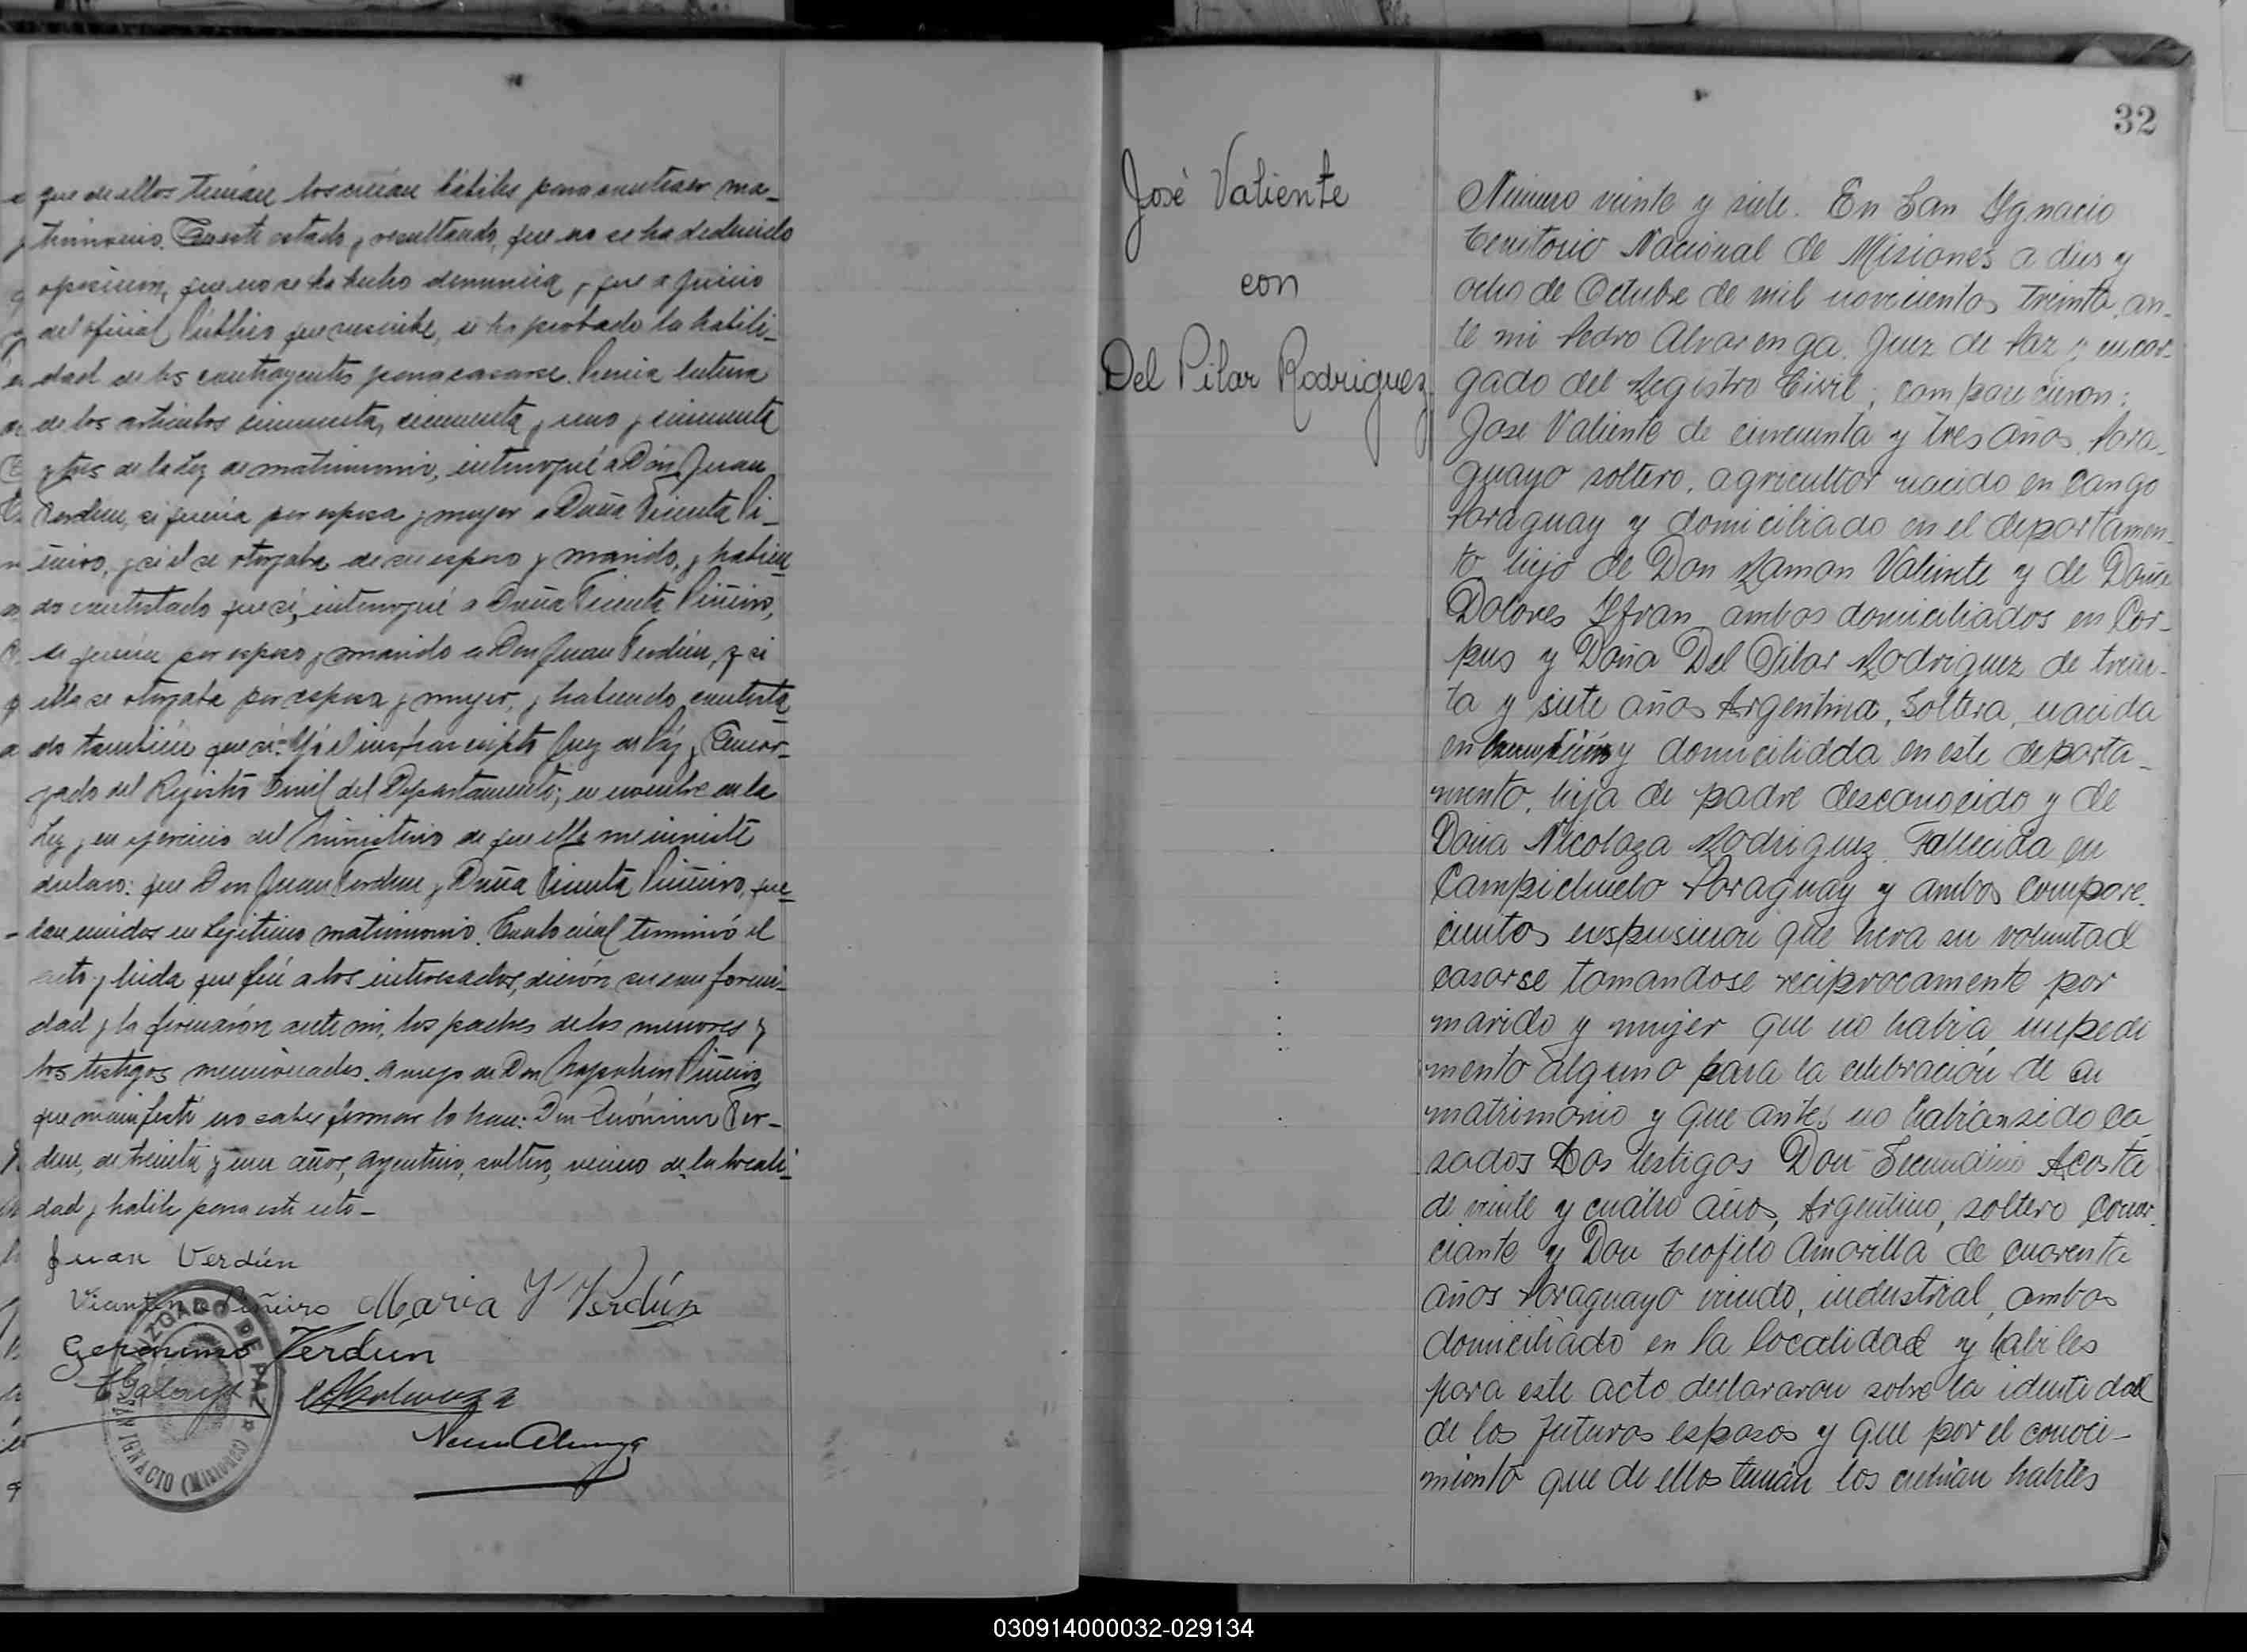 que de ellos tenían los creían hábiles para contraer ma-
trimonio. En este estado y resultando, que no se ha deducido
oposición, que no se ha hecho denuncia y que a juicio
del oficial Público que suscribe, se ha probado la habili-
dad de los contrayentes para casarse. Previa lectura
de los artículos cincuenta, cincuenta y uno y cincuenta
y tres de la Ley de matrimonio, interrogué a Don Juan
Verdun, si quería por esposa y mujer a Doña Vicenta Pi-
ñeiro, y si el se otorgaba de su esposo y marido, y habien
do contestado que sí, interrogué a Doña Vicenta Piñeiro,
si quería por esposo y marido a Don Juan Verdún, y si
ella se otorgaba por esposa y mujer, y habiendo contesta
do también que sí: Yo el infrascripto Juez de Paz y Encar-
gado del Registro Civil del Departamento; en nombre de la
Ley y en ejercicio del ministerio de que ella me inviste
declaro: que Don Juan Verdun y Doña Vicenta Piñeiro, que
dan unidos en Legítimo matrimonio. Con lo cual terminó el
acto y leida que fué a los interesados, dieron su conformi-
dad y la firmaron ante mi, los padres de los menores y
los testigos mencionados. A ruego de Don Napoleon Piñeiro,
que manifestó no saber firmar lo hace: Don Gerónimo Ver-
dun, de treinta y un años, argentino, soltero, vecino de la locali-
dad y habil para este acto -
Juan Verdún
Vicenta Piñeiro Maria Y Verdún
Geronimo Verdun
JUZGADO DE PAZ
SAN IGNACIO (MISIONES)
32
José Valiente
con
Del Pilar Rodriguez
Número veinte y siete. En San Ygnacio
Territorio Nacional de Misiones a dies y
ocho de Octubre de mil novecientos treinta, an-
te mi Pedro Alvarenga. Juez de Paz y encar-
gado del Registro Civil; comparecieron:
Jose Valiente de cincuenta y tres años, Para-
guayo soltero, agricultor nacido en Cango
Paraguay y domiciliado en el departamen-
to hijo de Don Ramon Valiente y de Doña
Dolores Yfran ambos domiciliados en Cor-
pus y Doña Del Pilar Rodriguez de trein-
ta y siete años Argentina, Soltera, nacida
en y domicilidda en este departa-
mento, hija de padre desconocido y de
Doña Nicolaza Rodriguez. Fallecida en
Campichuelo Paraguay y ambos compare-
cientos que hera su voluntad
casarse tomandose reciprocamente por
marido y mujer que no habia impedi
mento alguno para la celebración de su
matrimonio y que antes no habian sido ca
sados Los testigos Don Secundino Acosta
de veinte y cuatro años, Argentino, soltero Comer-
ciante y Don Teofilo Amarilla de cuarenta
años Paraguayo viudo, industrial, ambos
domiciliado en la localidad y habiles
para este acto declararon sobre la identidad
de los futuros esposos y que por el conoci-
miento que de ellos tenián los crehian habiles
030914000032-029134